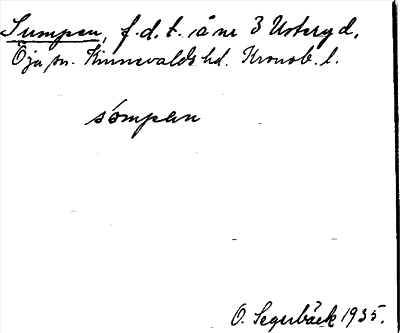 Sumpen, f.d.t. å nr 3 Usteryd,
Öja sn. Kinnevalds hd. Kronob. l.
sómpan
O. Segerbäck 1935.